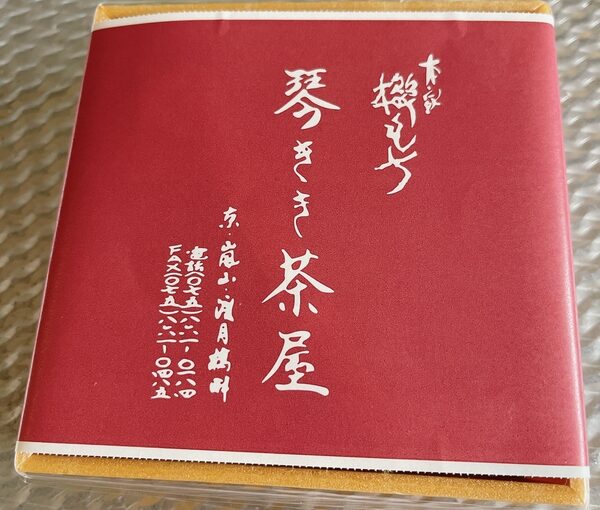 本家
櫻もち
琴きき茶屋
京・嵐山・渡月橋畔
電話(〇七五)八六一-〇一八四
FAX(〇七五)八六一-〇四八五